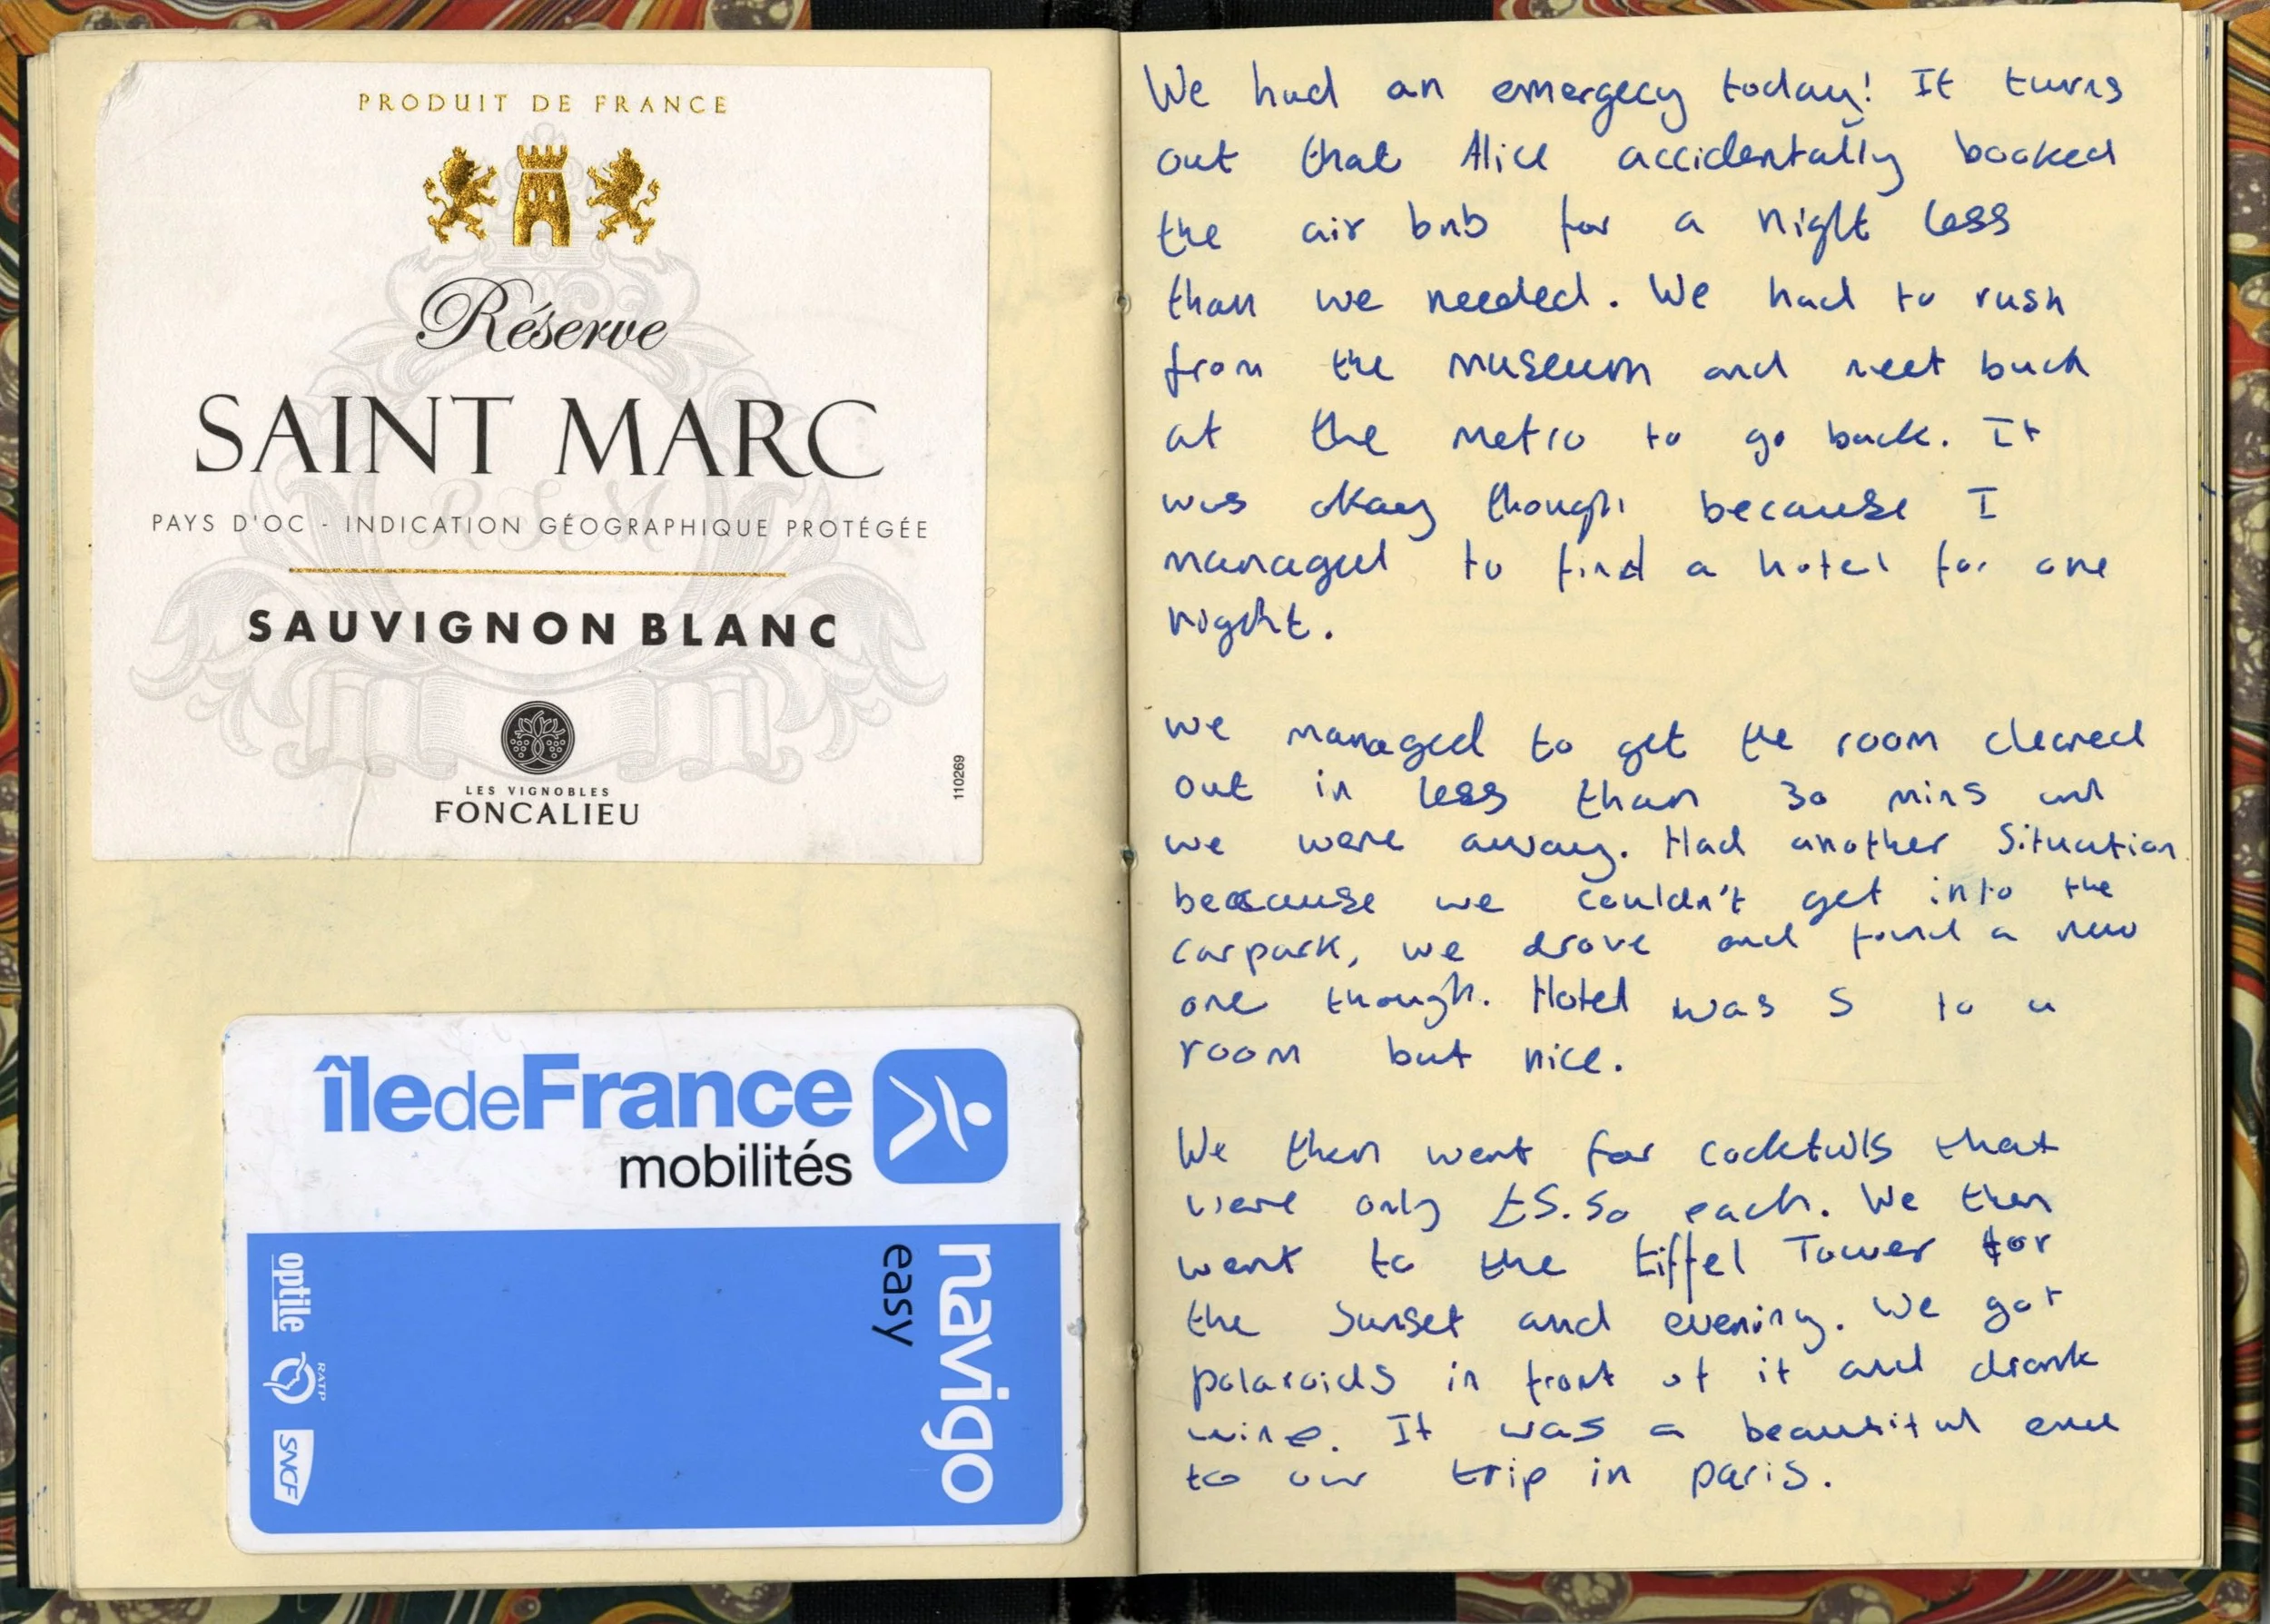 PRODUIT DE FRANCE
Réserve
SAINT MARC
PAYS D'OC - INDICATION GÉOGRAPHIQUE PROTÉGÉE
SAUVIGNON BLANC
LES VIGNOBLES
FONCALIEU
110269
île de France
mobilités
navigo
easy
optile
RATP
SNCF
We had an emergecy today! It turns
out that Alice accidentally booked
the air bnb for a night less
than we needed. We had to rush
from the museum and meet back
at the metro to go back. It
was okay though because I
managed to find a hotel for one
night.
we managed to get the room cleared
out in less than 30 mins and
we were away. Had another situation
because we couldn't get into the
carpark, we drove and found a new
one though. Hotel was 5 to a
room but nice.
We then went for cocktails that
were only £5.50 each. We then
went to the Eiffel Tower for
the sunset and evening. We got
polaroids in front of it and drank
wine. It was a beautiful end
to our trip in paris.